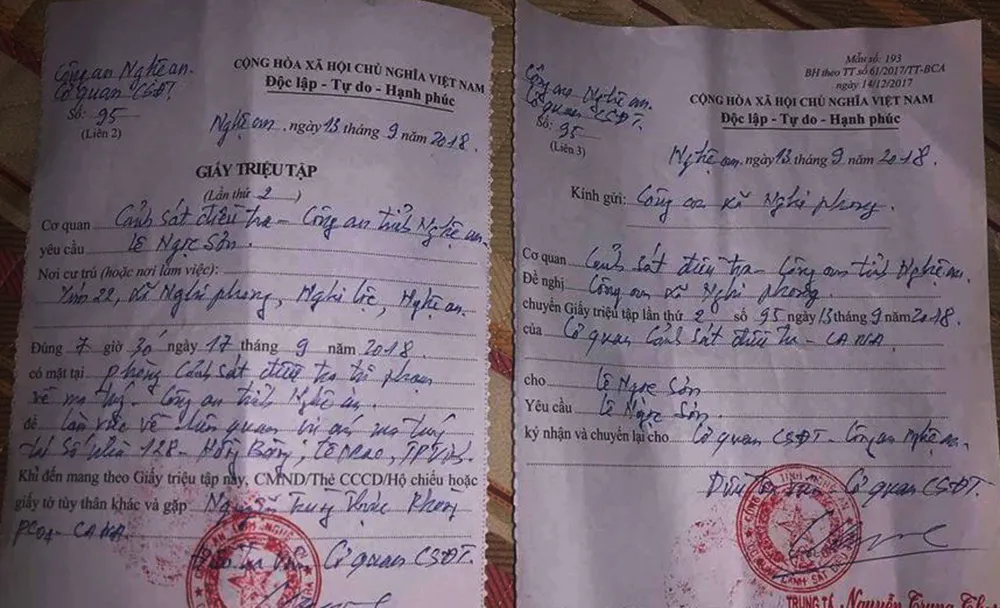 Công an Nghệ an.
Cơ quan CSĐT.
Số: 95
(Liên 2)
CỘNG HÒA XÃ HỘI CHỦ NGHĨA VIỆT NAM
Độc lập - Tự do - Hạnh phúc
Nghệ an, ngày 13 tháng 9 năm 2018.
GIẤY TRIỆU TẬP
(Lần thứ 2)
Cơ quan Cảnh sát điều tra - Công an tỉnh Nghệ an.
yêu cầu Lê Ngọc Sơn.
Nơi cư trú (hoặc nơi làm việc):
Xóm 22, xã Nghi phong, Nghi Lộc, Nghệ an.
Đúng 7 giờ 30 ngày 17 tháng 9 năm 2018.
có mặt tại phòng Cảnh sát điều tra tội phạm
về ma túy - Công an tỉnh Nghệ an.
để làm việc về liên quan vụ án ma túy
tại Số nhà 128 - Hồng Bàng, TP
Khi đến mang theo Giấy triệu tập này, CMND/Thẻ CCCD/Hộ chiếu hoặc
giấy tờ tùy thân khác và gặp Nguyễn Trung Phòng
PC04 - CANA.
Điều tra viên Cơ quan CSĐT.
Công an Nghệ an.
Cơ quan CSĐT.
Số: 95
(Liên 3)
Mẫu số: 193
BH theo TT số 61/2017/TT-BCA
ngày 14/12/2017
CỘNG HÒA XÃ HỘI CHỦ NGHĨA VIỆT NAM
Độc lập - Tự do - Hạnh phúc
Nghệ an, ngày 13 tháng 9 năm 2018.
Kính gửi: Công an xã Nghi phong.
Cơ quan Cảnh sát điều tra - Công an tỉnh Nghệ an.
Đề nghị Công an xã Nghi phong.
chuyển Giấy triệu tập lần thứ 2 số 95 ngày 13 tháng 9 năm 2018.
của Cơ quan Cảnh sát điều tra - CANA.
cho Lê Ngọc Sơn
Yêu cầu Lê Ngọc Sơn.
ký nhận và chuyển lại cho Cơ quan CSĐT - Công an Nghệ an.
Cơ quan CSĐT.
TRUNG TÁ Nguyễn Trung